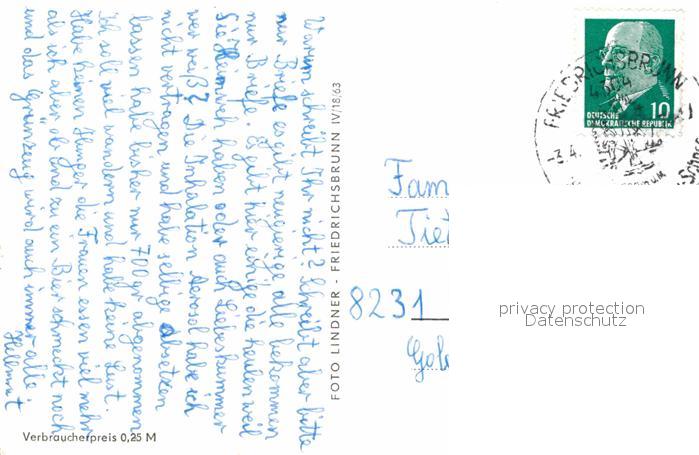 Warum schreibt Ihr nicht? Schreibt aber bitte
nur Briefe es gibt neugierige alle bekommen
nur Briefe. Es gibt hier einige die heulen weil
Sie Heimweh haben oder auch Liebeskummer
wer weiß? Die Inhalation Aerosol habe ich
nicht vertragen und habe selbige absetzen
lassen habe bisher nur 700 gr abgenommen
Ich soll viel wandern und habe keine Lust.
Habe keinen Hunger die Frauen essen viel mehr
als ich aber ab und zu ein Bier schmeckt noch
und das "Grünzeug" wird auch immer alle
Hellmut
Verbraucherpreis 0,25 M
FOTO LINDNER - FRIEDRICHSBRUNN IV/18/63
FRIEDRICHSBRUNN
4304
-3.4.
10
DEUTSCHE
DEMOKRATISCHE REPUBLIK
Fam
Tiet
8231
Gol
privacy protection
Datenschutz